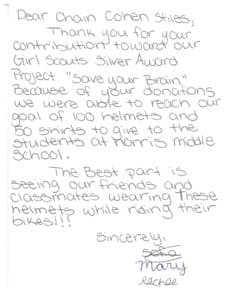 Dear Chain Cohen Stiles,
Thank you for your
contribution toward our
Girl Scouts Silver Award
Project "Save your Brain"
Because of your donations
we were able to reach our
goal of 100 helmets and
50 shirts to give to the
students at Norris middle
school.
The Best part is
seeing our friends and
classmates wearing These
helmets while riding their
bikes!!!
Sincerely,
Sofia
Mary
Rachae